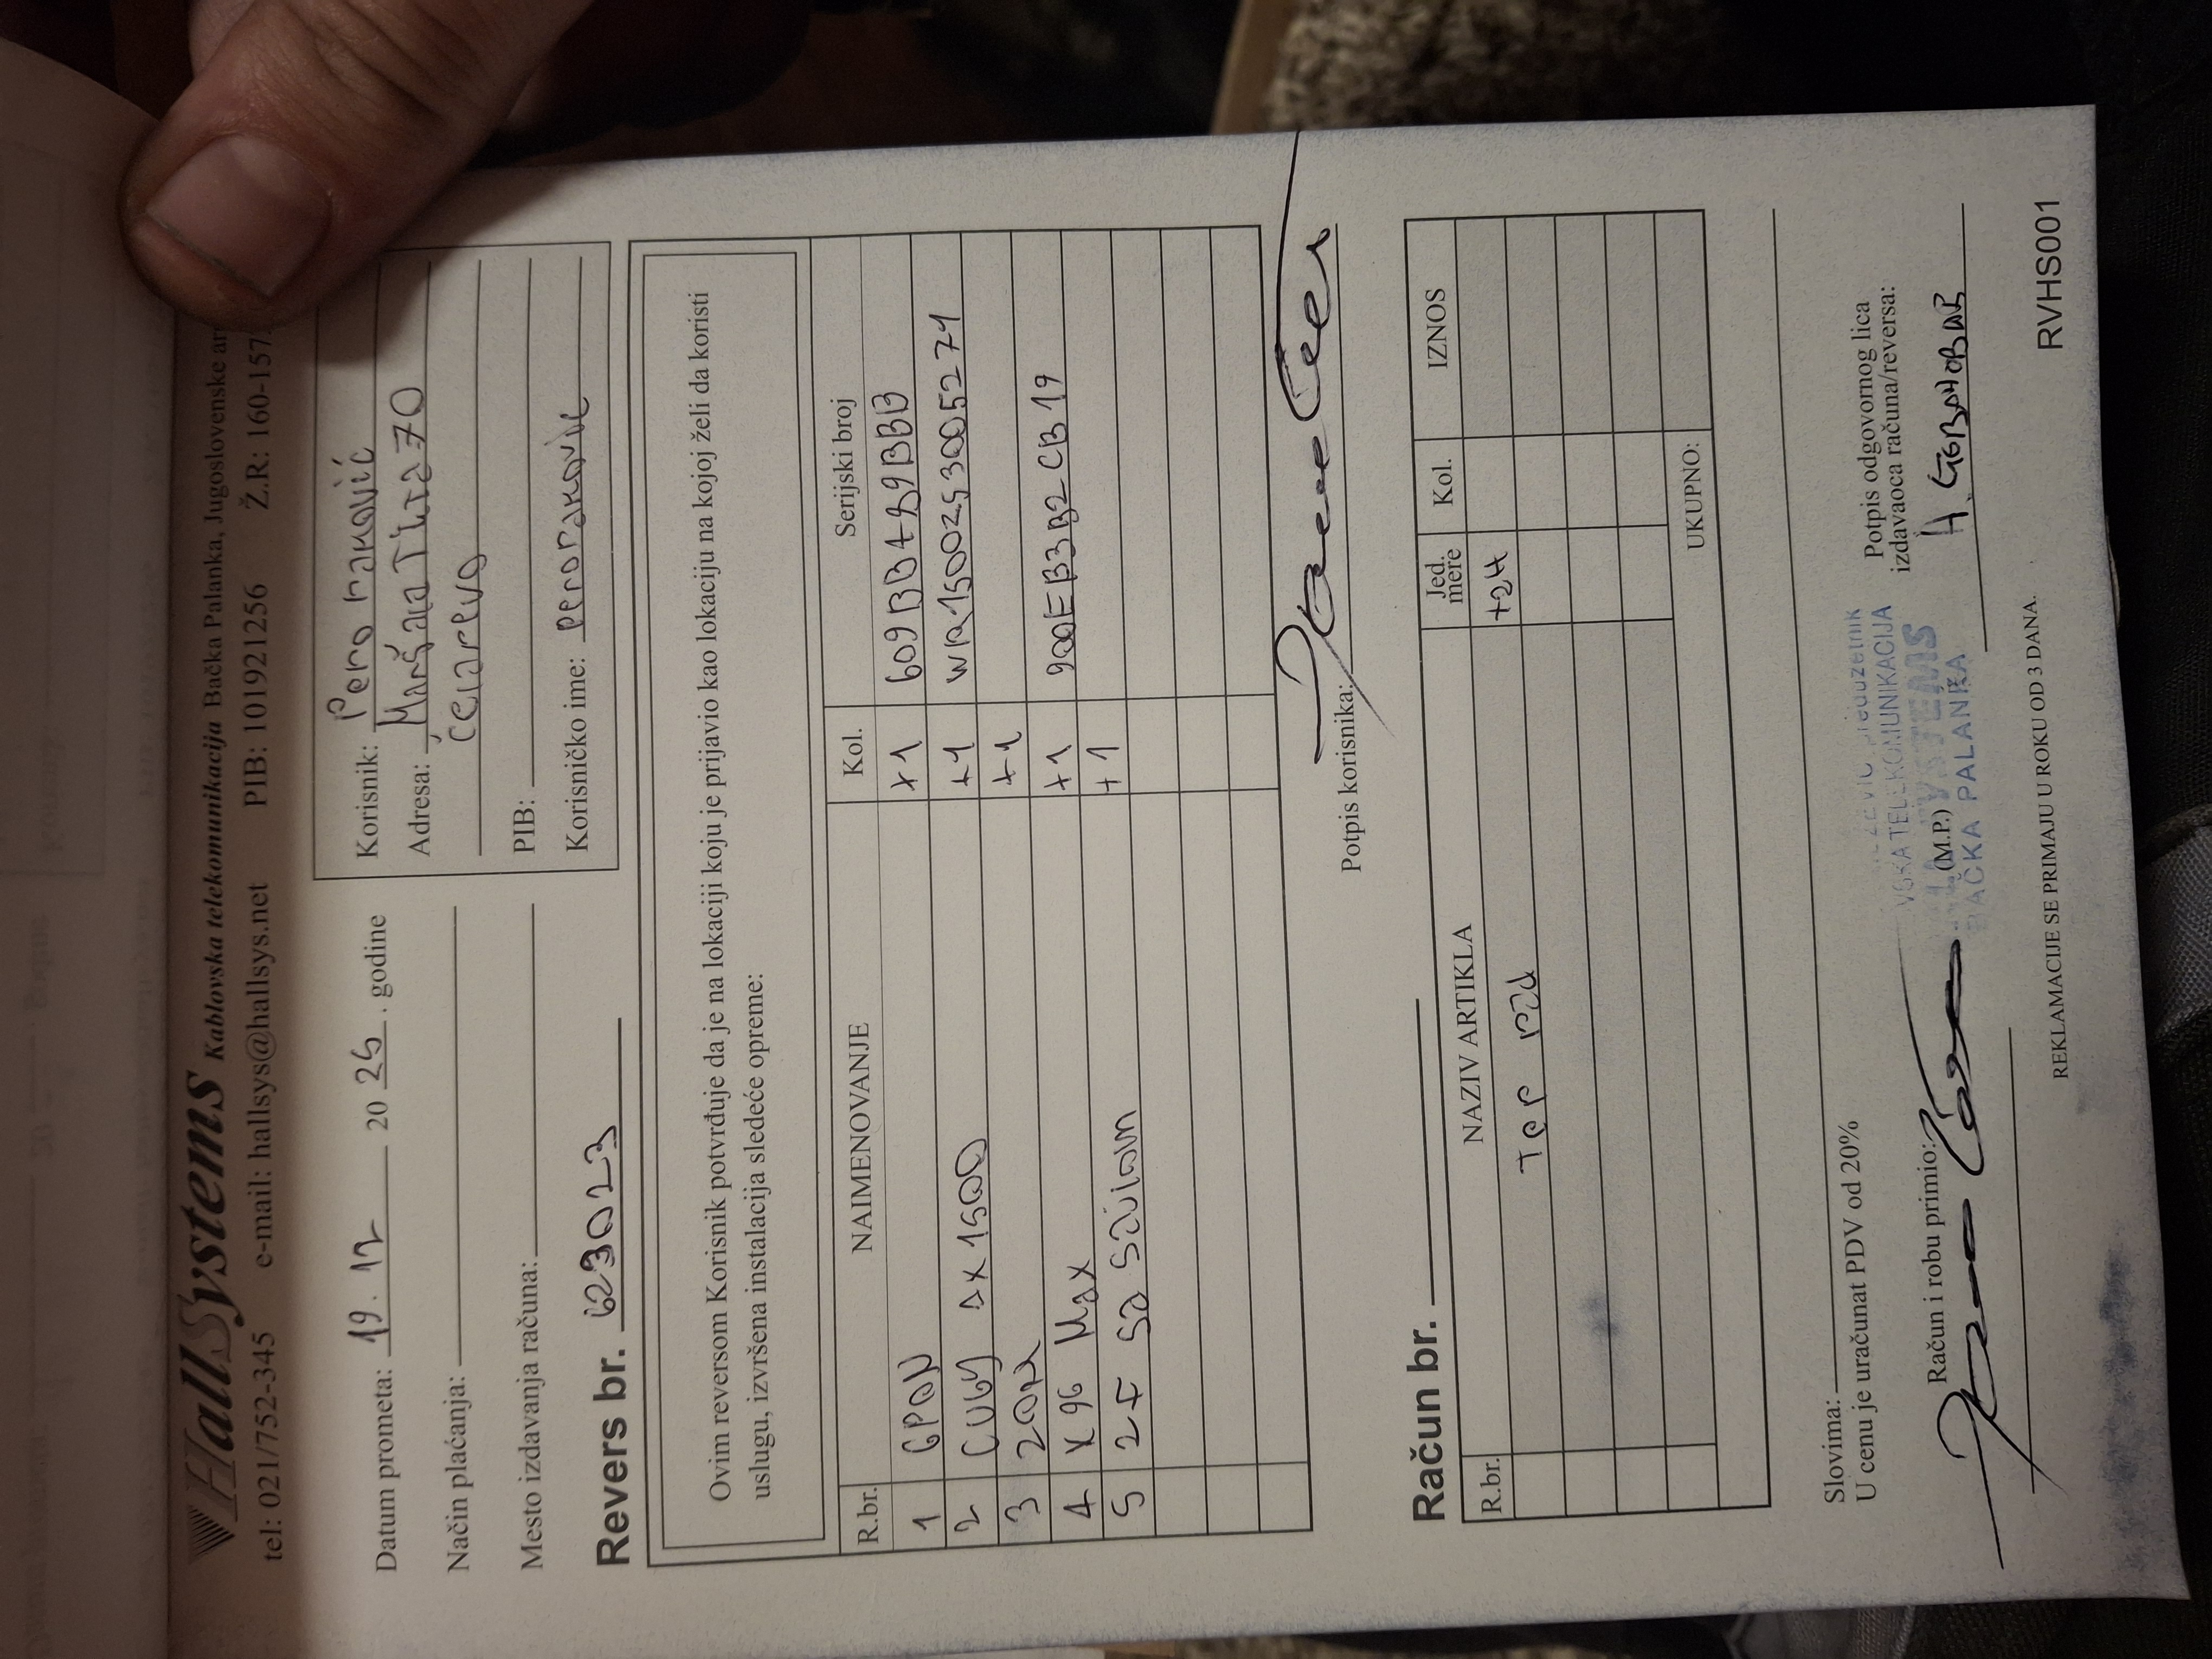 HallSystems Kablovska telekomunikacija Bačka Palanka, Jugoslovenske
tel: 021/752-345 e-mail: hallsys@hallsys.net PIB: 101921256 Ž.R: 160-157
Datum prometa: 19. 12 2025. godine
Način plaćanja:
Mesto izdavanja računa:
Korisnik: Pero raković
Adresa: Maršala Tita 70
čelarevo
PIB:
Korisničko ime: perorakovic
Revers br. 623023
Ovim reversom Korisnik potvrđuje da je na lokaciji koju je prijavio kao lokaciju na kojoj želi da koristi
uslugu, izvršena instalacija sledeće opreme:
R.br. NAIMENOVANJE Kol. Serijski broj
1 GPON +1
2 CUDY +1 WR1500253005271
3 +1
4 X96 Max +1 900EB3B2CB19
5 +1
Potpis korisnika:
Račun br.
R.br. NAZIV ARTIKLA Jed. mere Kol. IZNOS
Ter rad +2H
UKUPNO:
Slovima:
U cenu je uračunat PDV od 20%
Račun i robu primio:
(M.P.)
TELEKOMUNIKACIJA
BAČKA PALANKA
Potpis odgovornog lica
izdavaoca računa/reversa:
REKLAMACIJE SE PRIMAJU U ROKU OD 3 DANA.
RVHS001